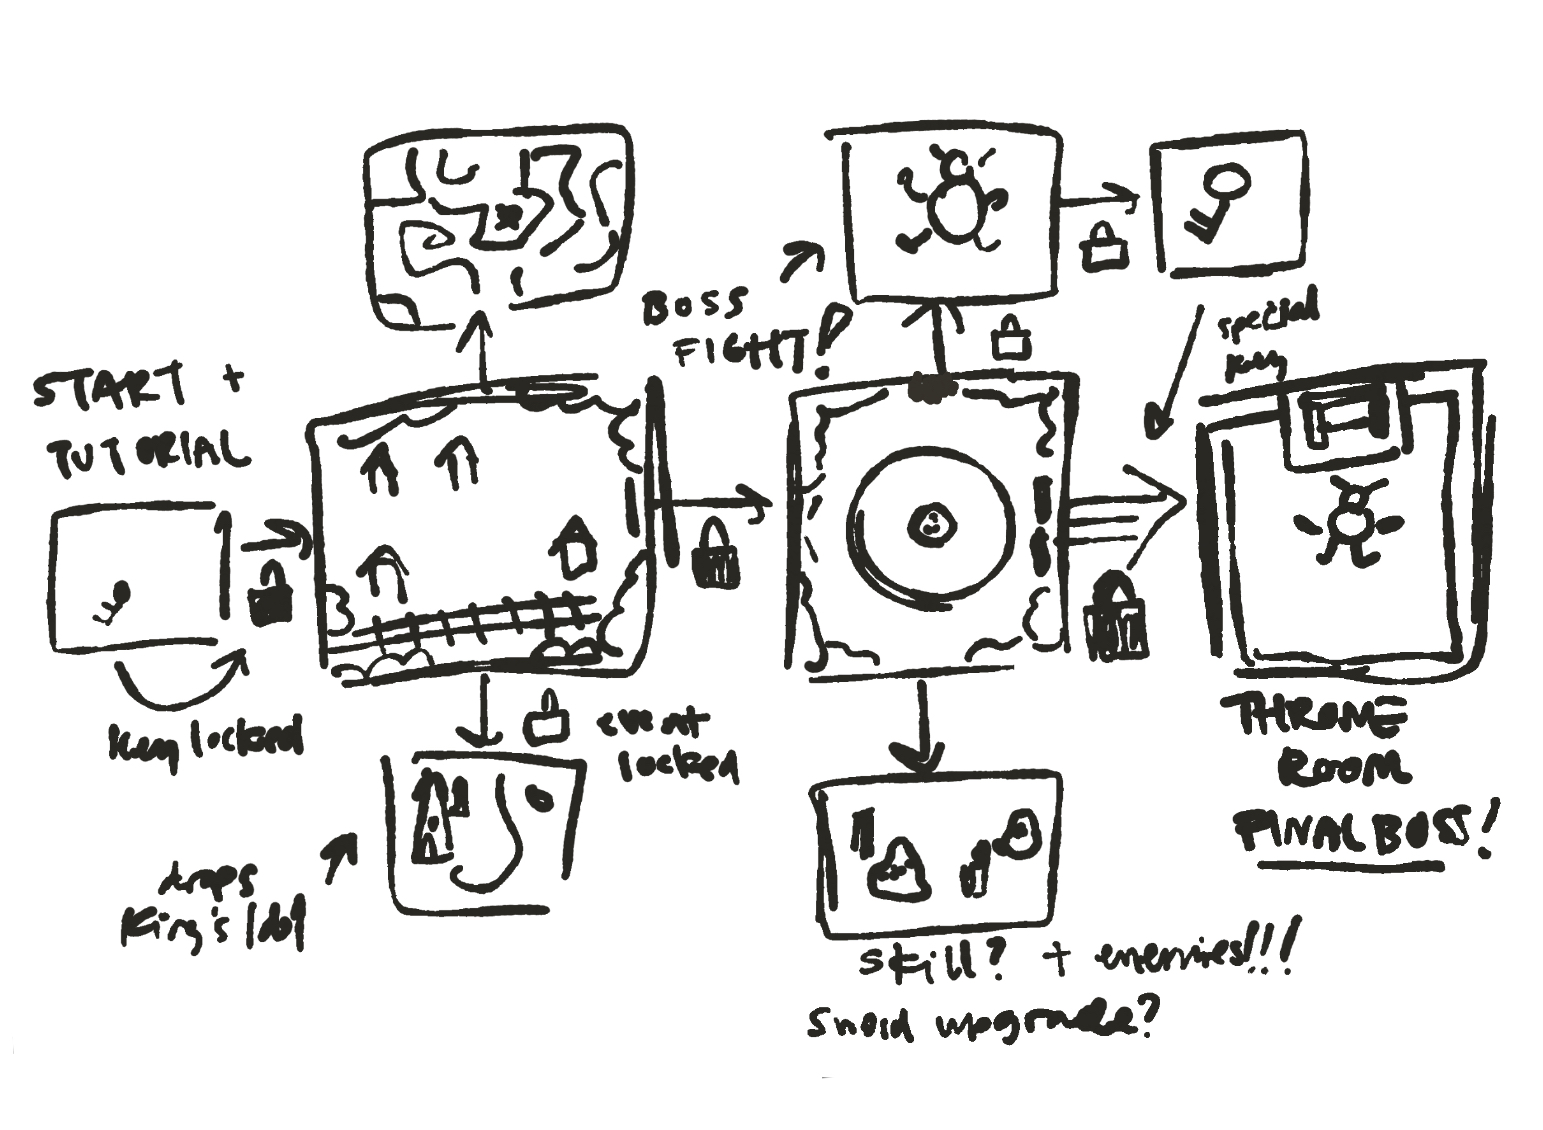 START +
TUTORIAL
key locked
event
locked
drops
King's Idol
BOSS
FIGHT!
special
key
THRONE
ROOM
FINAL BOSS!
skill? + enemies!!!
sword upgrade?